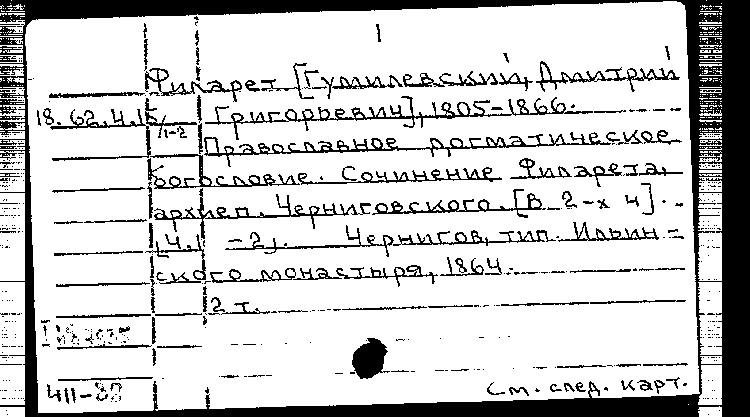 I
Филарет [Гумилевский, Дмитрий
18.62.4.15/1-2 Григорьевич], 1805-1866.
Православное догматическое
богословие. Сочинение Филарета,
архиеп. Черниговского. [В 2-х ч].
[Ч.1-2]. Чернигов, тип. Ильин-
ского монастыря, 1864.
2 т.
411-88
См. след. карт.